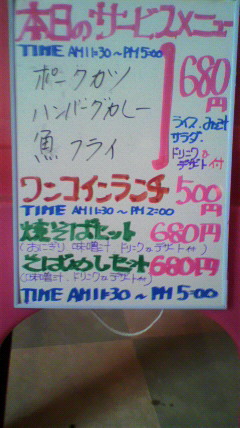 本日のサービスメニュー
TIME AM11:30 ~ PM5:00
ポークカツ
ハンバーグカレー
魚フライ
680円
ライス・みそ汁
サラダ・
ドリンク&
デザート付
ワンコインランチ 500円
TIME AM11:30 ~ PM2:00
焼そばセット 680円
(おにぎり 味噌汁 ドリンク&デザート付)
そばめしセット 680円
(味噌汁、ドリンク&デザート付)
TIME AM11:30 ~ PM5:00